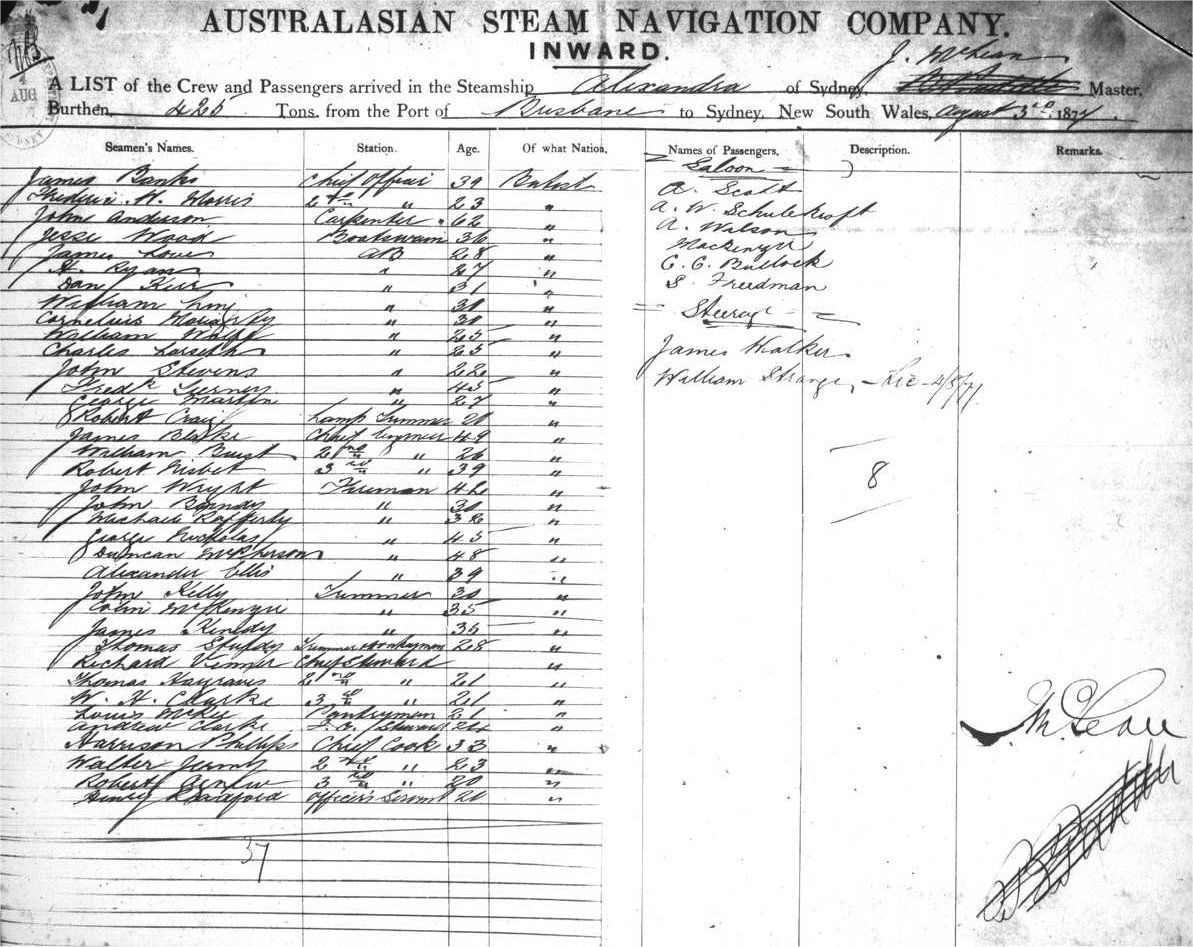 AUSTRALASIAN STEAM NAVIGATION COMPANY.
INWARD.
J. McLean
A LIST of the Crew and Passengers arrived in the Steamship, Alexandra of Sydney, Master,
Burthen, 425 Tons, from the Port of Brisbane to Sydney, New South Wales, August 3rd 1877
AUG
Seamen's Names. Station. Age. Of what Nation. Names of Passengers. Description. Remarks.
James Banks Chief Officer 39
Frederic H. Morris 2nd " 23 "
John Anderson Carpenter 62 "
Jesse Wood Boatswain 36 "
James Lowe AB 28 "
H. Ryan " 27 "
Dan Kerr " 31 "
William " 30 "
Cornelius Moriarty " 30 "
William Wolff " 25 "
Charles " 25 "
John Stevens " 22 "
Fredk Turner " 45 "
George Martin " 27 "
Robert Craig Lamp Trimmer 20 "
James Blake Chief Engineer 49 "
William Buist 2nd " 26 "
Robert Nisbet 3rd " 39 "
John Wright Fireman 42 "
John " 30 "
Michael Rafferty " 32 "
George Nicholas " 45 "
Duncan McPherson " 48 "
Alexander Ellis " 39 "
John Kelly Trimmer 30 "
Colin McKenzie " 35 "
James Kenedy " 35 "
Thomas Sturdy Trimmer & Donkeyman 28 "
Richard Venner Chief Steward "
Thomas Hargraves 2nd " 21 "
W. H. Clarke 3rd " 21 "
Louis McKee Pantryman 21 "
Andrew Clarke F. A. Steward 24 "
Harrison Phillips Chief Cook 33 "
Walter 2nd " 23 "
Robert 3rd " 20 "
Henry Bradford Officer's Servant 20 "
37
Saloon
A. Scott
A. W.
A. Watson
MacKenzie
C. C. Bullock
S. Freedman
Steerage
James Walker
William Strange
8
J McLean